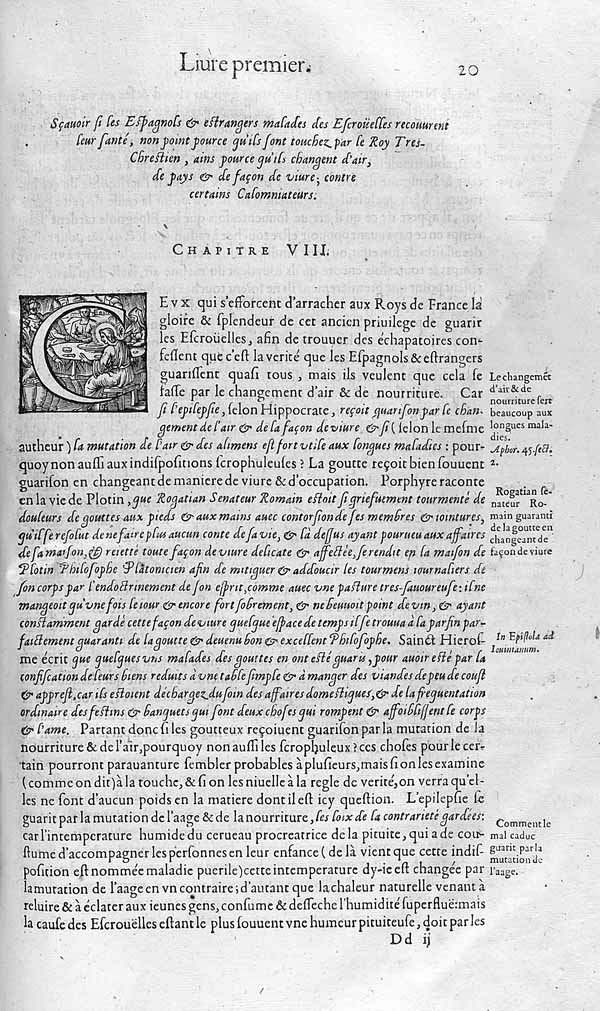 Liure premier.
20
Sçauoir si les Espagnols & estrangers malades des Escroüelles recouurent
leur santé, non point pource qu'ils sont touchez par le Roy Tres-
Chrestien, ains pource qu'ils changent d'air,
de pays & de façon de viure; contre
certains Calomniateurs.
CHAPITRE VIII.
CEVX qui s'efforcent d'arracher aux Roys de France la
gloire & splendeur de cet ancien priuilege de guarir
les Escroüelles, afin de trouuer des échapatoires con-
fessent que c'est la verité que les Espagnols & estrangers
guarissent quasi tous, mais ils veulent que cela se
fasse par le changement d'air & de nourriture. Car
si l'epilepsie, selon Hippocrate, reçoit guarison par le chan-
gement de l'air & de la façon de viure, & si (selon le mesme
autheur) la mutation de l'air & des alimens est fort vtile aux longues maladies: pour-
quoy non aussi aux indispositions scrophuleuses? La goutte reçoit bien souuent
guarison en changeant de maniere de viure & d'occupation. Porphyre raconte
en la vie de Plotin, que Rogatian Senateur Romain estoit si griefuement tourmenté de
douleurs de gouttes aux pieds & aux mains auec contorsion de ses membres & iointures,
qu'il se resolut de ne faire plus aucun conte de sa vie, & là dessus ayant pourueu aux affaires
de sa maison, & reietté toute façon de viure delicate & affectée, se rendit en la maison de
Plotin Philosophe Platonicien afin de mitiguer & addoucir les tourmens iournaliers de
son corps par l'endoctrinement de son esprit, comme auec vne pasture tres-sauoureuse: il ne
mangeoit qu'vne fois le iour & encore fort sobrement, & ne beuuoit point de vin, & ayant
constamment gardé cette façon de viure quelque espace de temps il se trouua à la parfin par-
faictement guaranti de la goutte & deuenu bon & excellent Philosophe. Sainct Hieros-
me écrit que quelques vns malades des gouttes en ont esté guaris, pour auoir esté par la
confiscation de leurs biens reduits à vne table simple & à manger des viandes de peu de coust
& apprest, car ils estoient déchargez du soin des affaires domestiques, & de la frequentation
ordinaire des festins & banquets qui sont deux choses qui rompent & affoiblissent le corps
& l'ame. Partant donc si les goutteux reçoiuent guarison par la mutation de la
nourriture & de l'air, pourquoy non aussi les scrophuleux? ces choses pour le cer-
tain pourront parauanture sembler probables à plusieurs, mais si on les examine
(comme on dit) à la touche, & si on les niuelle à la regle de verité, on verra qu'el-
les ne sont d'aucun poids en la matiere dont il est icy question. L'epilepsie se
guarit par la mutation de l'aage & de la nourriture, les loix de la contrarieté gardées:
car l'intemperature humide du cerueau procreatrice de la pituite, qui a de cou-
stume d'accompagner les personnes en leur enfance (de là vient que cette indis-
position est nommée maladie puerile) cette intemperature dy-ie est changée par
la mutation de l'aage en vn contraire; d'autant que la chaleur naturelle venant à
reluire & à éclater aux ieunes gens, consume & desseche l'humidité superfluë: mais
la cause des Escroüelles estant le plus souuent vne humeur pituiteuse, doit par les
Dd ij
Le changemét
d'air & de
nourriture sert
beaucoup aux
longues mala-
dies.
Aphor. 45. sect.
2.
Rogatian se-
nateur Ro-
main guaranti
de la goutte en
changeant de
façon de viure
In Epistola ad
Iouinianum.
Comment le
mal caduc
guarit par la
mutation de
l'aage.